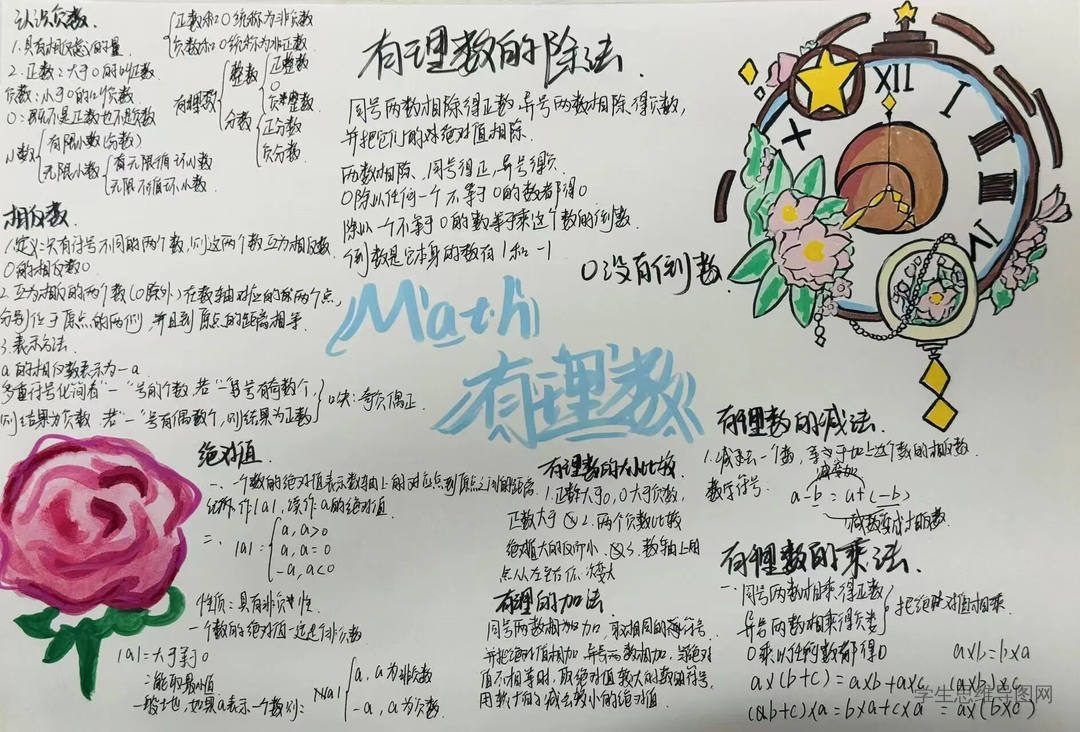 认识负数.
1.具有相反意义的量.
2.正数:大于0的叫正数
负数:小于0的叫负数
0:既不是正数也不是负数
小数
有限小数(分数)
无限小数
有无限循环小数
无限不循环小数.
正数和0统称为非负数
负数和0统称为非正数.
有理数
整数
正整数
0
负整数
分数
正分数
负分数.
相反数.
1.定义:只有符号不同的两个数,则这两个数互为相反数.
0的相反数0
2.互为相反的两个数(0除外)在数轴对应的两个点,
分别位于原点的两侧,并且到原点的距离相等.
3.表示方法.
a的相反数表示为-a.
多重符号化简看"-"号的个数.若"-"号有奇数个,
则结果为负数.若"-"号有偶数个,则结果为正数
口诀:奇负偶正.
有理数的除法.
同号两数相除得正数,异号两数相除,得负数,
并把它们的绝对值相除.
两数相除、同号得正,异号得负.
0除以任何一个不等于0的数都得0
除以一个不等于0的数等于乘这个数的倒数.
倒数是它本身的数有1和-1
0没有倒数.
XII
I
III
IV
X
Math
有理数
绝对值.
一、一个数的绝对值表示数轴上的对应点到原点之间的距离.
作|a|,读作:a的绝对值.
二、|a|=
a,a>0
a,a=0
-a,a<0
性质:具有非负性.
一个数的绝对值一定是非负数
|a|=大于等于0
一般地,如果a表示一个数,则:
a,a为非负数
-a,a为负数.
有理数的大小比较
1.正数大于0,0大于负数,
正数大于 2.两个负数比较
绝对值大的反而小. 3.数轴上的
点从左至右依次变大
有理的加法.
同号两数相加,取相同的符号.
并把绝对值相加,异号两数相加,绝对
值不相等时,取绝对值较大的数的符号,
用较大的减去较小的绝对值.
有理数的减法.
1.减去一个数,等于加上这个数的相反数.
数字符号.
a-b=a+(-b)
减数变成相反数.
有理数的乘法.
一.同号两数相乘得正数
异号两数相乘得负数
把绝对值相乘.
0乘以任何数都得0
a×b=b×a
a×(b+c)=a×b+a×c
(a×b)×c
(b+c)×a=b×a+c×a
=a×(b×c)
学生思维导图网